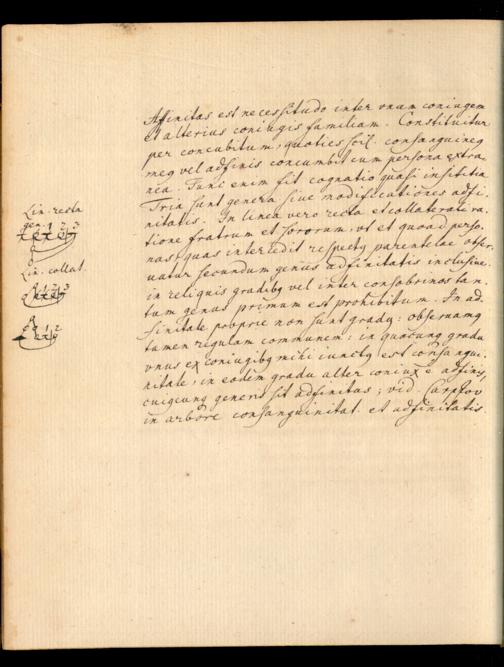 Affinitas est necessitudo inter vnam coniugem
et alterius coniugis familiam. Constituitur
per concubitum, quoties scil. consanguineq
meq vel adfinis concumbit cum persona extra-
nea. Tunc enim fit cognatio quasi insititia
Tria sunt genera sive modificationes adfi-
nitatis. In linea vero recta et collaterali ra-
tione fratrum et sororum, vt et quoad perso-
nas, quas intercedit respectq parentelae obser-
uatur secundum genus adfinitatis inclusiue.
in reliquis gradibq vel inter consobrinos tan-
tum genus primum est prohibitum. In ad-
finitate proprie non sunt gradq: obseruamq
tamen regulam communem: in quocunq gradu
vnus ex coniugibq mihi iunctq est consangui-
nitate, in eodem gradu alter coniux e adfinis,
cuiqcunq generis sit adfinitas; vid. Carpzov
in arbore consanguinitat. et adfinitatis
Lin. recta
gen. 1 2 3
Lin. collat.
1 2 3
1 2